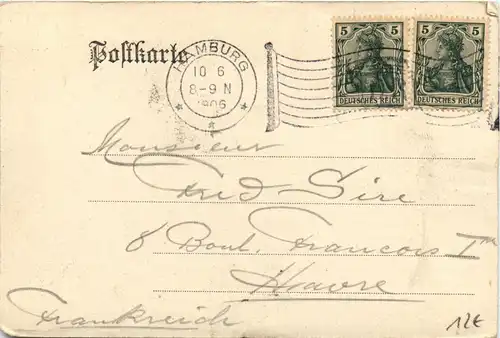 Postkarte
HAMBURG
10 6
8-9 N
1906
5 5
DEUTSCHES REICH
5 5
DEUTSCHES REICH
Monsieur
Fred Sire
8 Boul. Francois Ier
Havre
Frankreich
12€